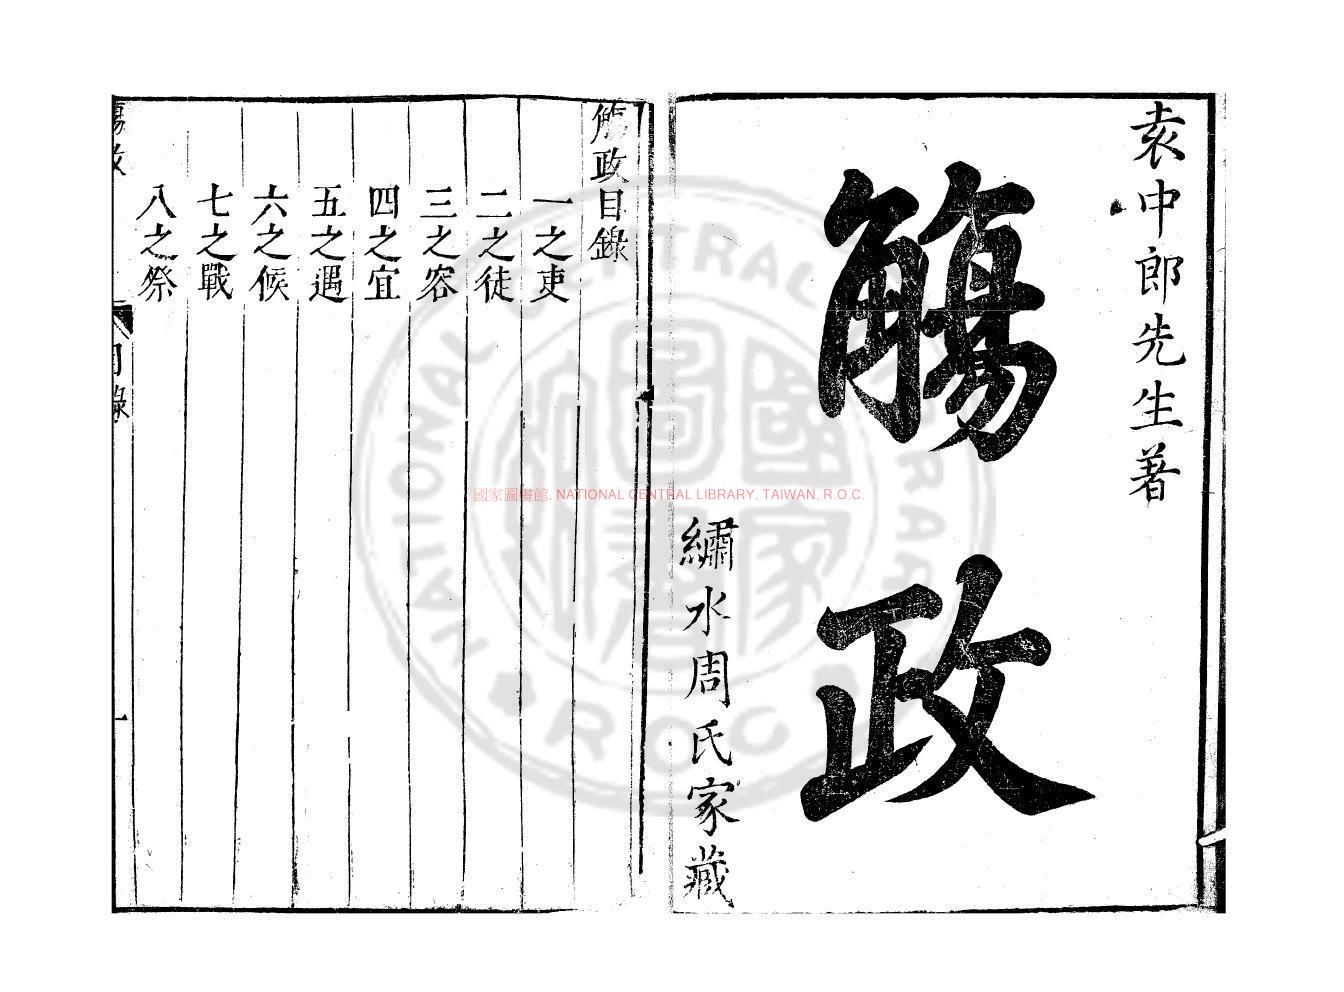 袁中郎先生著
觴政
繡水周氏家藏
觴政目錄
一之吏
二之徒
三之容
四之宜
五之遇
六之候
七之戰
八之祭
觴政
目錄
一
國家圖書館, NATIONAL CENTRAL LIBRARY, TAIWAN, R.O.C.
NATIONAL CENTRAL LIBRARY
R.O.C.
國家圖書館